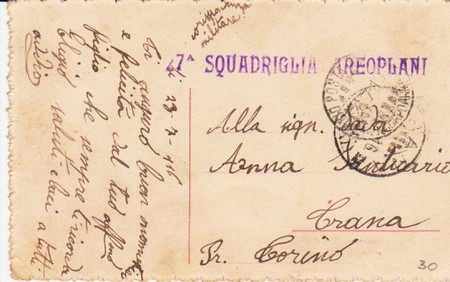 corrispondenza
militare
7ª SQUADRIGLIA AREOPLANI
li 23-7-916
Ti auguro buon onomastico
e felicità dal tuo aff
figlio che sempre ti ricorda
Eligio saluti baci a tutti
addio
Alla sign.
Anna Santuario
Trana
Pr. Torino
30